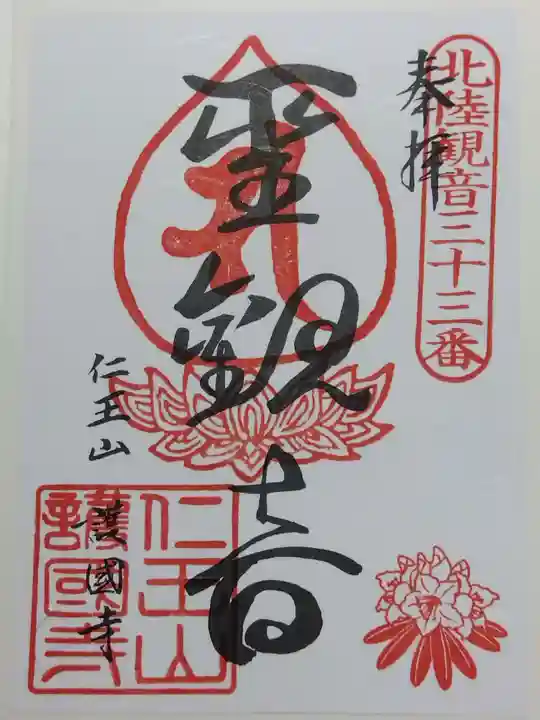 北陸観音三十三番
奉拝
聖観音
仁王山
護國寺
仁王山
護國寺